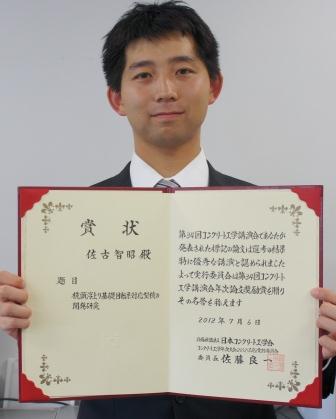 賞状
佐古智昭殿
題目
開発研究
第34回コンクリート工学講演会であなたが
発表された標記の論文は選考の結果
特に優秀な講演と認められました
よって実行委員会は第34回コンクリート
工学講演会年次論文奨励賞を贈り
その名誉を称えます
2012年7月6日
日本コンクリート工学会
委員長 佐藤良一